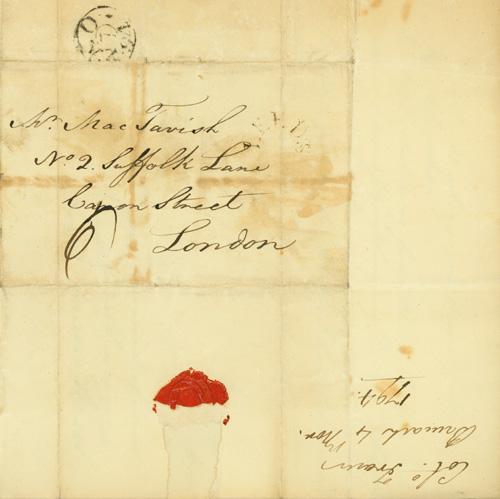 Mr. Mac Tavish
No 2. Suffolk Lane
Canon Street
6 London
Col: Fraser
4 Nov.
1794.